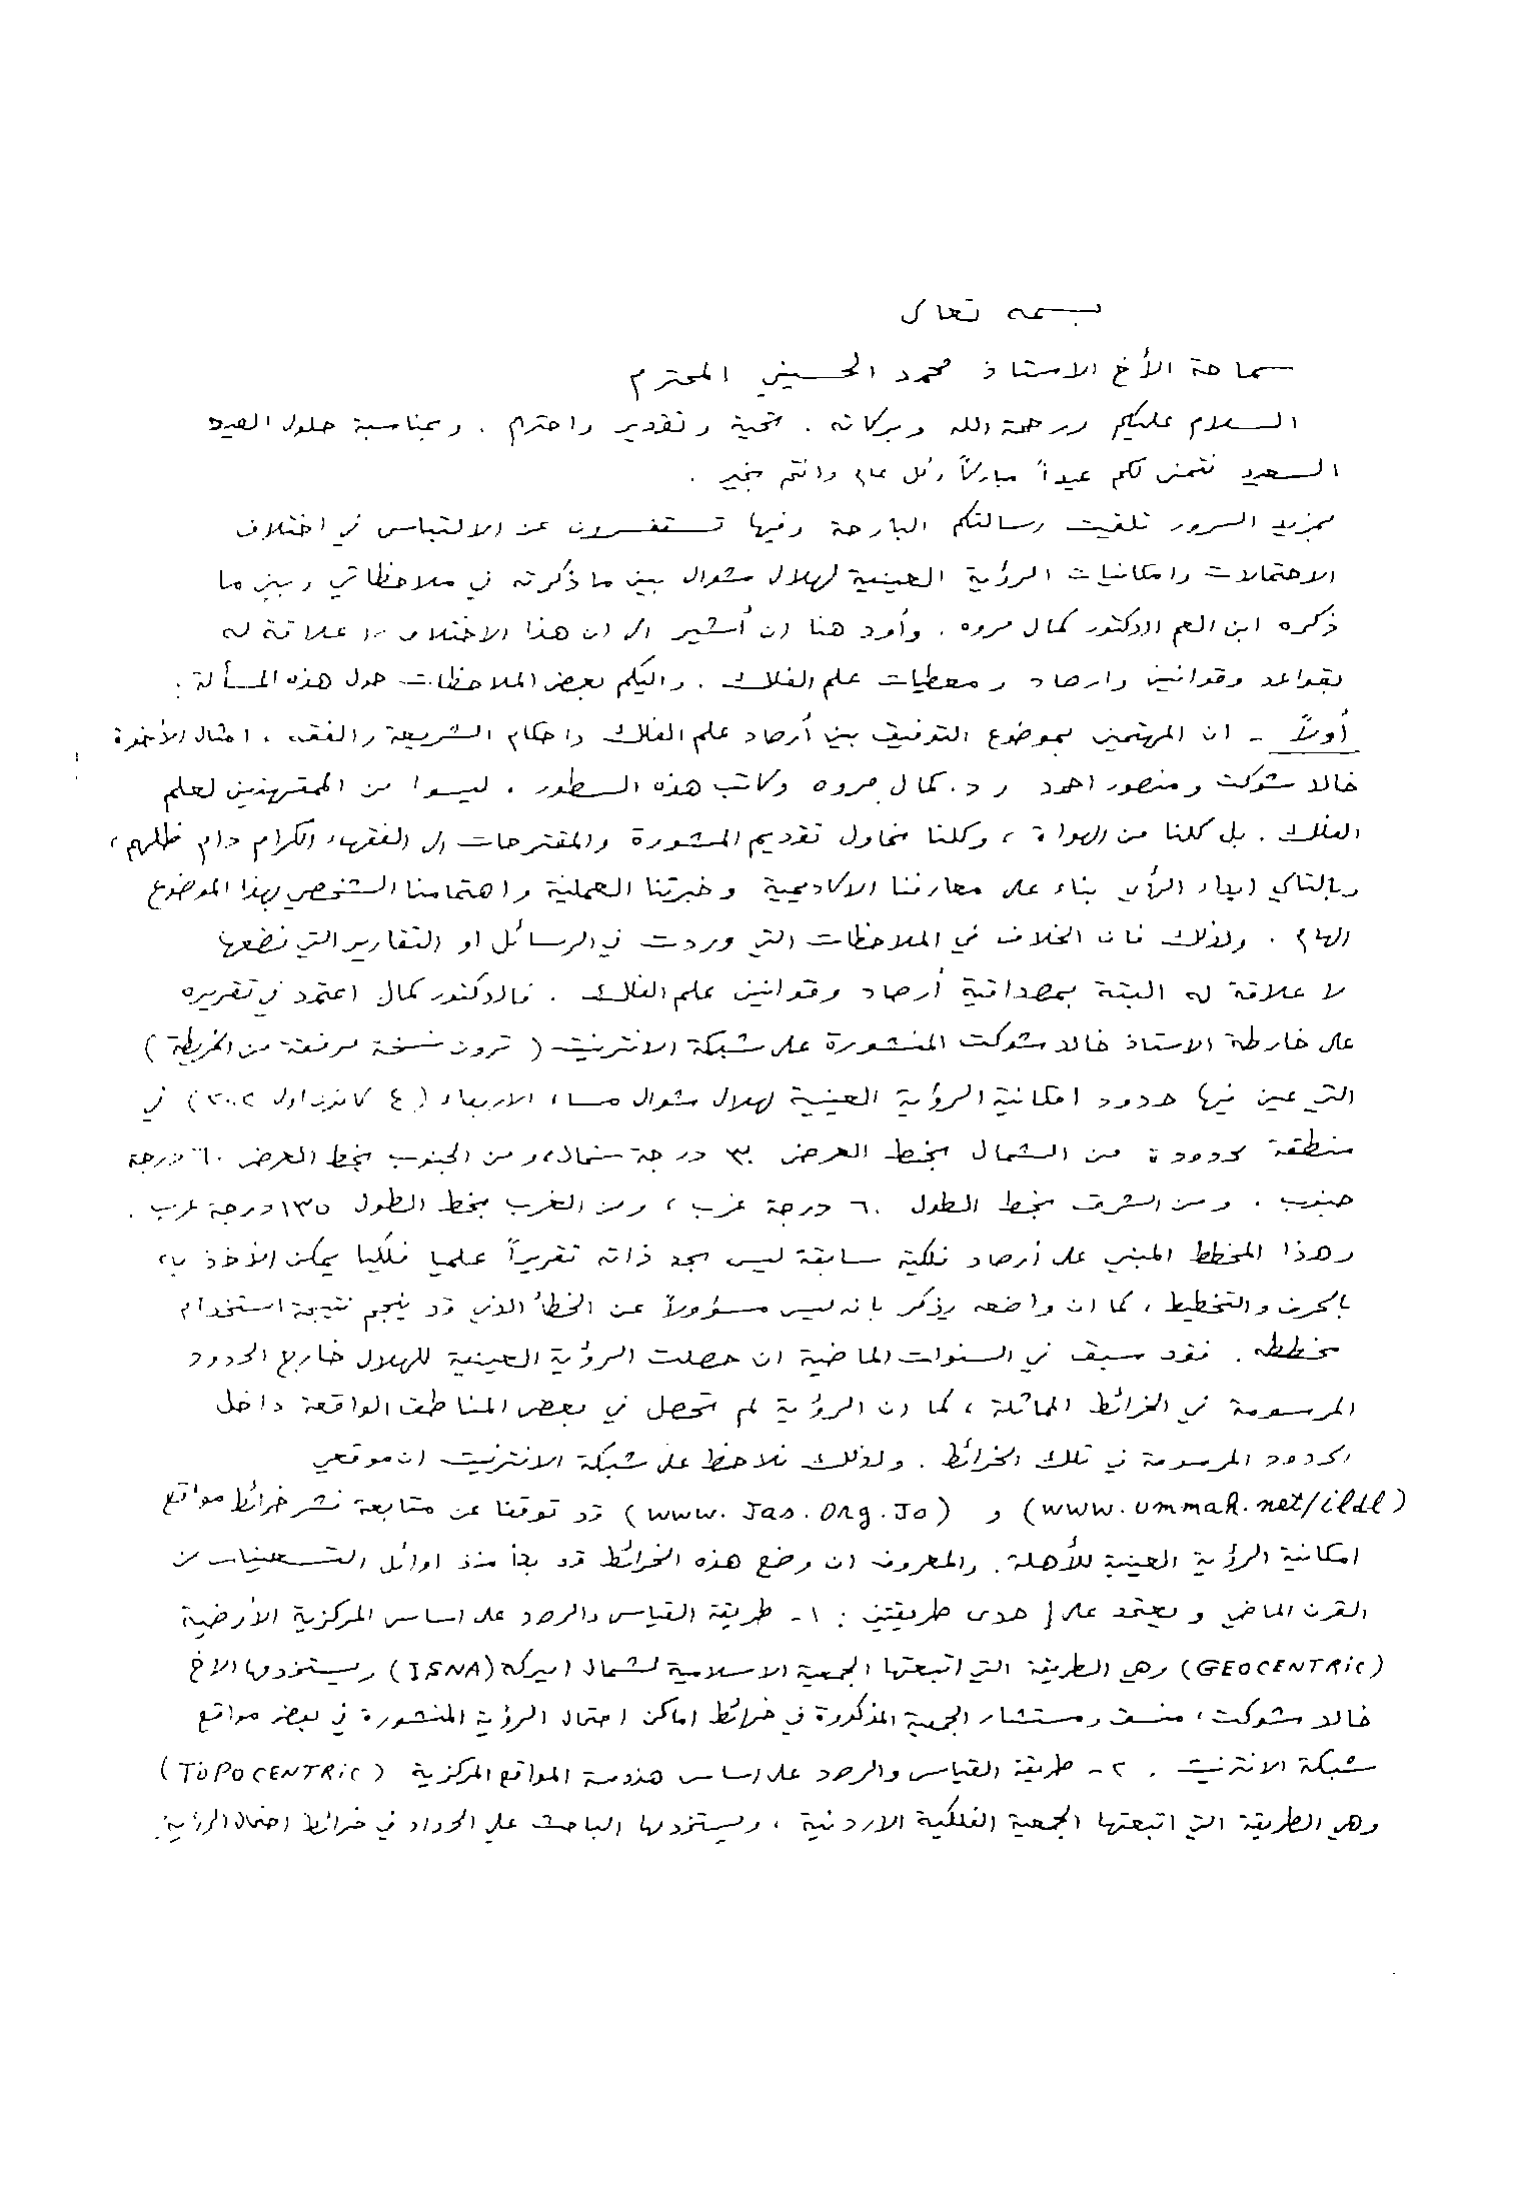 بسمه تعالى
سماحة الأخ الاستاذ محمد الحسيني المحترم
السلام عليكم ورحمة الله وبركاته . تحية وتقدير واحترم . وبمناسبة حلول العيد
السعيد نتمنى لكم عيداً مباركاً وكل عام وانتم بخير .
بمزيد السرور تلقيت رسالتكم البارحة وفيها تستفسرون عن الالتباس في اختلاف
الاحتمالات وامكانيات الرؤية العينية لهلال شوال بين ما ذكرته في ملاحظاتي وبين ما
ذكره ابن العم الدكتور كمال مروه . وأود هنا ان أشير الى ان هذا الاختلاف لا علاقة له
بقواعد وقوانين وارصاد ومعطيات علم الفلك . واليكم بعض الملاحظات حول هذه المسألة :
أولاً - ان المهتمين بموضوع التوفيق بين أرصاد علم الفلك واحكام الشريعة والفقه ، امثال الأخوة
خالد شوكت ومنصور احمد و د. كمال مروه وكاتب هذه السطور ، ليسوا من الممتهنين لعلم
الفلك . بل كلنا من الهواة ، وكلنا نحاول تقديم المشورة والمقترحات الى الفقهاء الكرام دام ظلهم ،
وبالتالي ابداء الرأي بناء على معارفنا الاكاديمية وخبرتنا العملية واهتمامنا الشخصي بهذا الموضوع
الهام . ولذلك فان الخلاف في الملاحظات التي وردت في الرسائل او التقارير التي نضعها
لا علاقة له البتة بمصداقية أرصاد وقوانين علم الفلك . فالدكتور كمال اعتمد في تقريره
على خارطة الاستاذ خالد شوكت المنشورة على شبكة الانترنيت ( ترون نسخة مرفقة من الخريطة )
التي عين فيها حدود امكانية الرؤية العينية لهلال شوال مساء الاربعاء ( ٤ كانون اول ٢٠٠٢ ) في
منطقة محدودة من الشمال بخط العرض ٣٠ درجة شمال ، ومن الجنوب بخط العرض ٦٠ درجة
جنوب . ومن الشرق بخط الطول ٦٠ درجة غرب ، ومن الغرب بخط الطول ١٣٥ درجة غرب .
وهذا المخطط المبني على أرصاد فلكية سابقة ليس بحد ذاته تقريراً علميا فلكيا يمكن الأخذ به ،
بالحرف والتخطيط ، كما ان واضعه يذكر بانه ليس مسؤولاً عن الخطأ الذي قد ينجم نتيجة استخدام
مخططه . فقد سبق في السنوات الماضية ان حصلت الرؤية العينية للهلال خارج الحدود
المرسومة في الخرائط المماثلة ، كما ان الرؤية لم تحصل في بعض المناطق الواقعة داخل
الحدود المرسومة في تلك الخرائط . ولذلك نلاحظ على شبكة الانترنيت ان موقعي
(www.ummah.net/ildl) و (www.Jas.Org.Jo) قد توقفا عن متابعة نشر خرائط مواقع
امكانية الرؤية العينية للأهلة . والمعروف ان وضع هذه الخرائط قد بدأ منذ اوائل التسعينات من
القرن الماضي ويعتمد على إحدى طريقتين : ١- طريقة القياس والرصد على اساس المركزية الأرضية
(GEOCENTRic) وهي الطريقة التي اتبعتها الجمعية الاسلامية لشمال اميركه (ISNA) ويستخدمها الاخ
خالد شوكت ، منسق ومستشار الجمعية المذكورة في خرائط اماكن احتمال الرؤية المنشورة في بعض مواقع
شبكة الانترنيت . ٢- طريقة القياس والرصد على اساس هندسة المواقع المركزية (ToPOCENTRic)
وهي الطريقة التي اتبعتها الجمعية الفلكية الاردنية ، ويستخدمها الباحث علي الحداد في خرائط احتمال الرؤية .